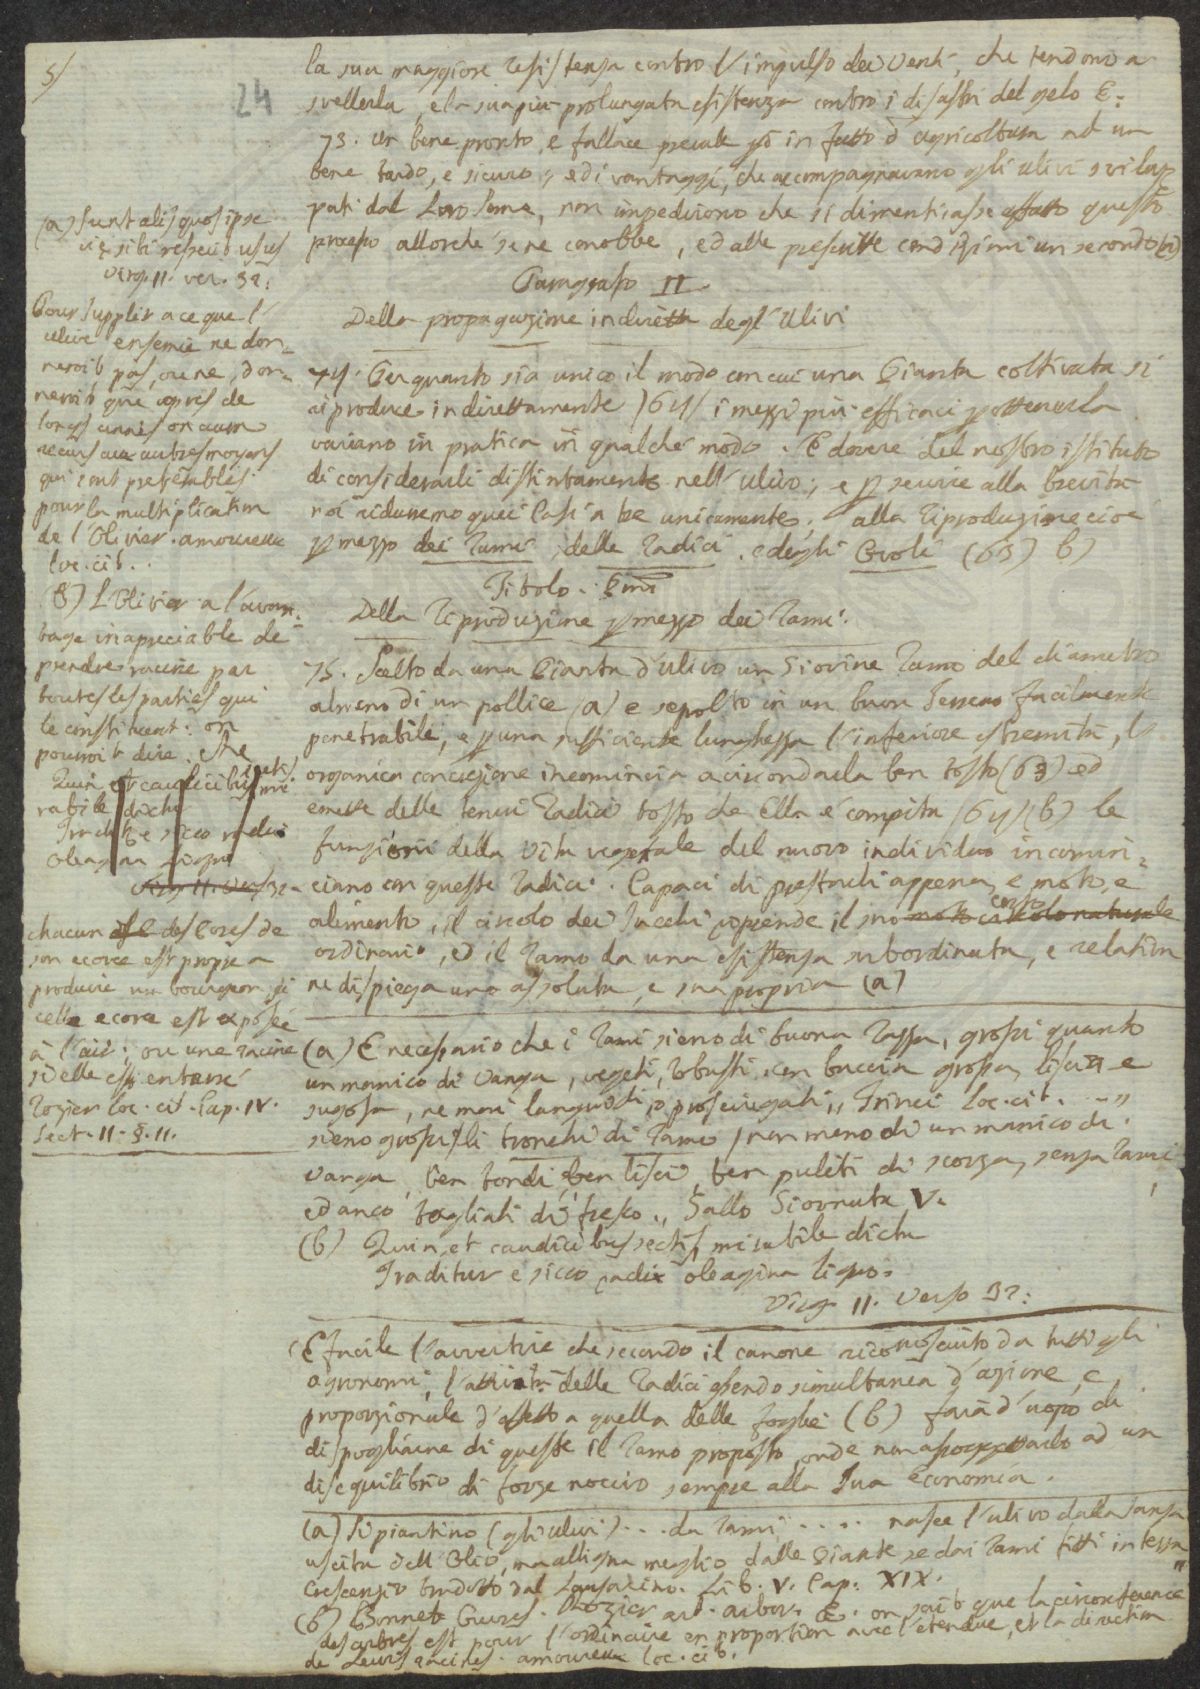 5/
24
la sua maggiore resistenza contro l'impulso dei venti, che tendono a
svellerla, e la sua più prolungata esistenza contro i disastri del gelo &:
73. Un bene pronto, e fallace prevale in fatto d'agricoltura ad un
bene tardo, e sicuro, ed i vantaggi, che accompagnavano gli ulivi svilup
pati dal loro seme, non impedirono che si dimenticasse affatto questo
processo allorché se ne conobbe, ed alle prescritte condizioni un secondo (a)
Paragrafo II.
Della propagazione indiretta degl'Ulivi
74. Per quanto sia unico il modo con cui una Pianta coltivata si
riproduce indirettamente /64/ i mezzi più efficaci p ottenerla
variano in pratica in qualche modo. È dovere del nostro istituto
di considerarli distintamente nell'ulivo; e p servire alla brevità
noi ridurremo quei casi a tre unicamente. alla riproduzione cioè
p mezzo dei rami, delle radici, e degli Ovoli (63) b)
Titolo. Pmo
Della Riproduzione p mezzo dei rami.
75. Scelto da una Pianta d'ulivo un Giovine ramo del diametro
almeno di un pollice (a) e sepolto in un buon terreno facilmente
penetrabile, e p una sufficiente lunghezza l'inferiore estremità, l'
organica concrezione incomincia a circondarla ben tosto (63) ed
emesse delle tenui radici tosto che Ella è compita /64/ (b) le
funzioni della vita vegetale del nuovo individuo incomin=
ciano con queste radici. Capaci di prestarli appena, e moto, e
alimento, il circolo dei succhi riprende il suo moto circolo naturale corso
ordinario, ed il ramo da una esistenza subordinata, e relativa
ne dispiega una assoluta, e sua propria (a)
(a) È necessario che i rami sieno di buona razza, grossi quanto
un manico di vanga, vegeti, robusti, con buccia grossa, liscia e
sugosa, ne mai languidi, o prosciugati,, Trinci loc. cit. - - ,,
sieno grossi li tronchi di ramo /non meno di un manico di
vanga, ben tondi, ben lisci, ben puliti di scorza, senza rami
ed anco tagliati di fresco,, Gallo Giornata V.
(b) Quin, et caudicibus sectis, mirabile dictu
Traditur e sicco radix oleagina ligno.
Virg. II. verso 32:
È facile l'avvertire che secondo il canone riconosciuto da tutti gli
agronomi, l'attività delle radici essendo simultanea d'azione, e
proporzionale d'effetto a quella delle foglie (b) farà d'uopo di
dispogliarne di queste il ramo proposto, onde non assoggettarlo ad un
disequilibrio di forze nocivo sempre alla sua economia.
(a) Si piantino (gli ulivi) . . . da rami . . . . nasce l'ulivo dalla sansa
uscita dell'Olio, ma alligna meglio dalle Piante se dai rami fitti in terra
Crescenzio tradotto dal Sansovino. Lib. V. Cap. XIX.
(b) Bonnet Œuvres. Rozier art. arbor. &. on sait que la circonference
des arbres est pour l'ordinaire en proportion avec l'etendue, et la direction
de leurs racines. amoureux loc. cit.
(a) Sunt alis quos ipse
via sibi reperit usus
Virg. II. ver. 32:
Pour supplir a ce que l'
ulive ensemie ne don=
neroit pas, ou ne don=
neroit que apres de
longs annes on aura
recurs aux autres moyens
qui sont preferables
pour la multiplication
de l'Olivier. amoureux
loc. cit..
(B) L'Olivier a l'avan=
tage inapreciable de
prendre racine par
toutes les parties qui
le constituent: on
pouroit dire. che
Quin, et caudicibus sectis mi
rabile dictu
Traditur e sicco radix
oleagina ligno
Virg. II. vers. 32.
chacun des pores de
son ecorce est propre a
produire un bourgeon, si
celle ecorce est exposée
à l'air; ou une racine
si elle est enterré
Rozier loc. cit. Cap. IV.
Sect. II. §. II.